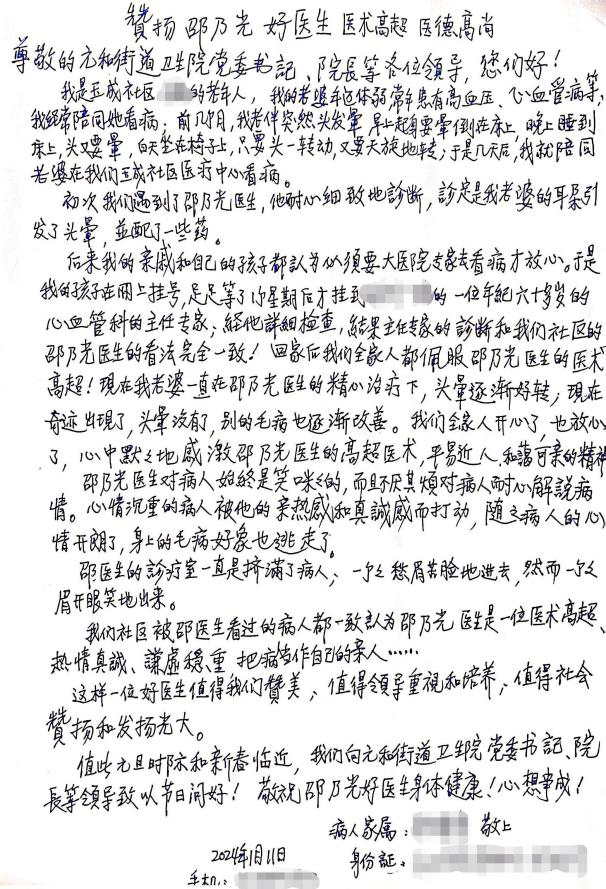 贊扬 邵乃光 好医生 医术高超 医德高尚
尊敬的元和街道卫生院党委书記、院長等各位領导，您们好！
我是玉成社区 的老年人，我的老婆年迈体弱常年患有高血压、心血管病等，
我经常陪同她看病；前几个月，我老伴突然头发暈，早上起身要暈倒在床上，晚上睡到
床上，头又要暈，白天坐在椅子上，只要头一转动，又要天旋地转；于是几天后，我就陪同
老婆在我们玉成社区医疗中心看病。
初次我们遇到了邵乃光医生，他耐心細致地診断，診定是我老婆的耳朵引
发了头暈，並配了一些药。
后来我的亲戚和自己的孩子都認为必须要大医院专家去看病才放心。于是
我的孩子在网上挂号，足足等了 星期后才挂到 的一位年紀六十多岁的
心血管科的主任专家；经他詳細检查，結果主任专家的診断和我们社区的
邵乃光医生的看法完全一致！回家后我们全家人都佩服邵乃光医生的医术
高超！現在我老婆一直在邵乃光医生的精心治疗下，头暈逐漸好转，現在
奇迹出現了，头暈没有了，别的毛病也逐漸改善。我们全家人开心了，也放心
了，心中默々地感激邵乃光医生的高超医术，平易近人、和藹可亲的精神
邵乃光医生对病人始終是笑咪々的，而且不厌其煩对病人耐心解説病
情。心情沉重的病人被他的亲热感和真誠感而打动，随之病人的心
情开朗了，身上的毛病好象也逃走了。
邵医生的診疗室一直是挤滿了病人，一个々愁眉苦脸地进去，然而一个々
眉开眼笑地出来。
我们社区被邵医生看过的病人都一致認为邵乃光医生是一位医术高超、
热情真誠、謙虚穩重 把病当作自己的亲人……
这样一位好医生值得我们贊美；值得領导重視和培养；值得社会
贊扬和发扬光大。
值此元旦时际和新春临近，我们向元和街道卫生院党委书記、院
長等領导致以节日问好！敬祝邵乃光好医生身体健康！心想事成！
病人家属： 敬上
2024年1月11日 身份証：
手机：